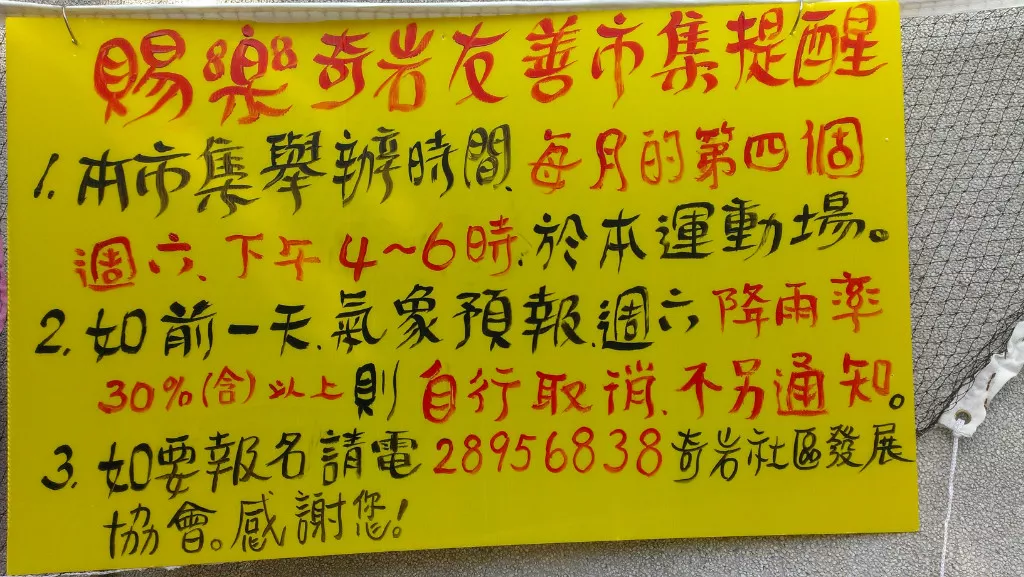 賜樂奇岩友善市集提醒
1.本市集舉辦時間、每月的第四個
週六、下午4~6時、於本運動場。
2.如前一天、氣象預報、週六降雨率
30%(含)以上則自行取消、不另通知。
3.如要報名請電28956838奇岩社區發展
協會。感謝您!